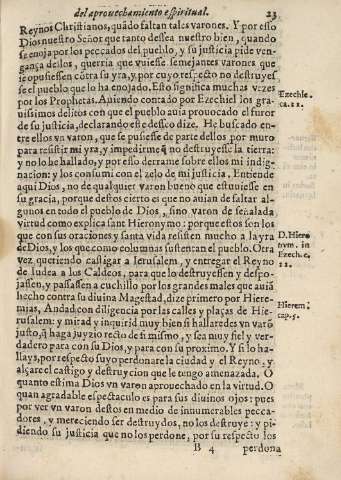 del aprouechamiento espiritual. 23
Reynos Christianos, quãdo faltan tales varones. Y por esso
Dios nuestro Señor que tanto dessea nuestro bien, quando
se enoja por los peccados del pueblo, y su justicia pide ven-
gança dellos, querria que vuiesse semejantes varones que
se opusiessen cõtra su yra, y por cuyo respecto no destruyes
se el pueblo que lo ha enojado. Esto significa muchas vezes
por los Prophetas. Auiendo contado por Ezechiel los gra
uissimos delitos con que el pueblo auia prouocado el furor
de su justicia, declarando esse desseo dize. He buscado en-
tre ellos vn varon, que se pusiesse de parte dellos por muro
para resistir mi yra, y impedirme q̃ no destruyesse la tierra:
y no lo he hallado, y por esso derrame sobre ellos mi indig-
nacion: y los consumi con el zelo de mi justicia. Entiende
aqui Dios, no de qualquier varon bueno que estuuiesse en
su gracia, porque destos cierto es que no auian de faltar al-
gunos en todo el pueblo de Dios, sino varon de señalada
virtud como explica sant Hieronymo: porque estos son los
que con sus oraciones y santa vida resisten mucho a la yra
de Dios, y los que como columnas sustentan el pueblo. Otra
vez queriendo castigar a Ierusalem, y entregar el Reyno
de Iudea a los Caldeos, para que lo destruyessen y despo-
jassen, y passassen a cuchillo por los grandes males que auiã
hecho contra su diuina Magestad, dize primero por Hiere-
mias, Andad con diligencia por las calles y plaças de Hie-
rusalem: y mirad y inquirid muy bien si hallaredes vn varõ
justo, q̃ haga juyzio recto de si mismo, y sea muy fiel y ver-
dadero para con su Dios, y para con su proximo. Y si lo ha-
llays, por respecto suyo perdonare la ciudad y el Reyno, y
alçare el castigo y destruycion que le tengo amenazada. O
quanto estima Dios vn varon aprouechado en la virtud. O
quan agradable espectaculo es para sus diuinos ojos: pues
por ver vn varon destos en medio de innumerables pecca-
dores, y mereciendo ser destruydos, no los destruye: y pi-
diendo su justicia que no los perdone, por su respecto los
B 4 perdona
Ezechie.
ca. 22.
D. Hiero
nym. in
Ezech. c.
22.
Hierem.
cap. 5.